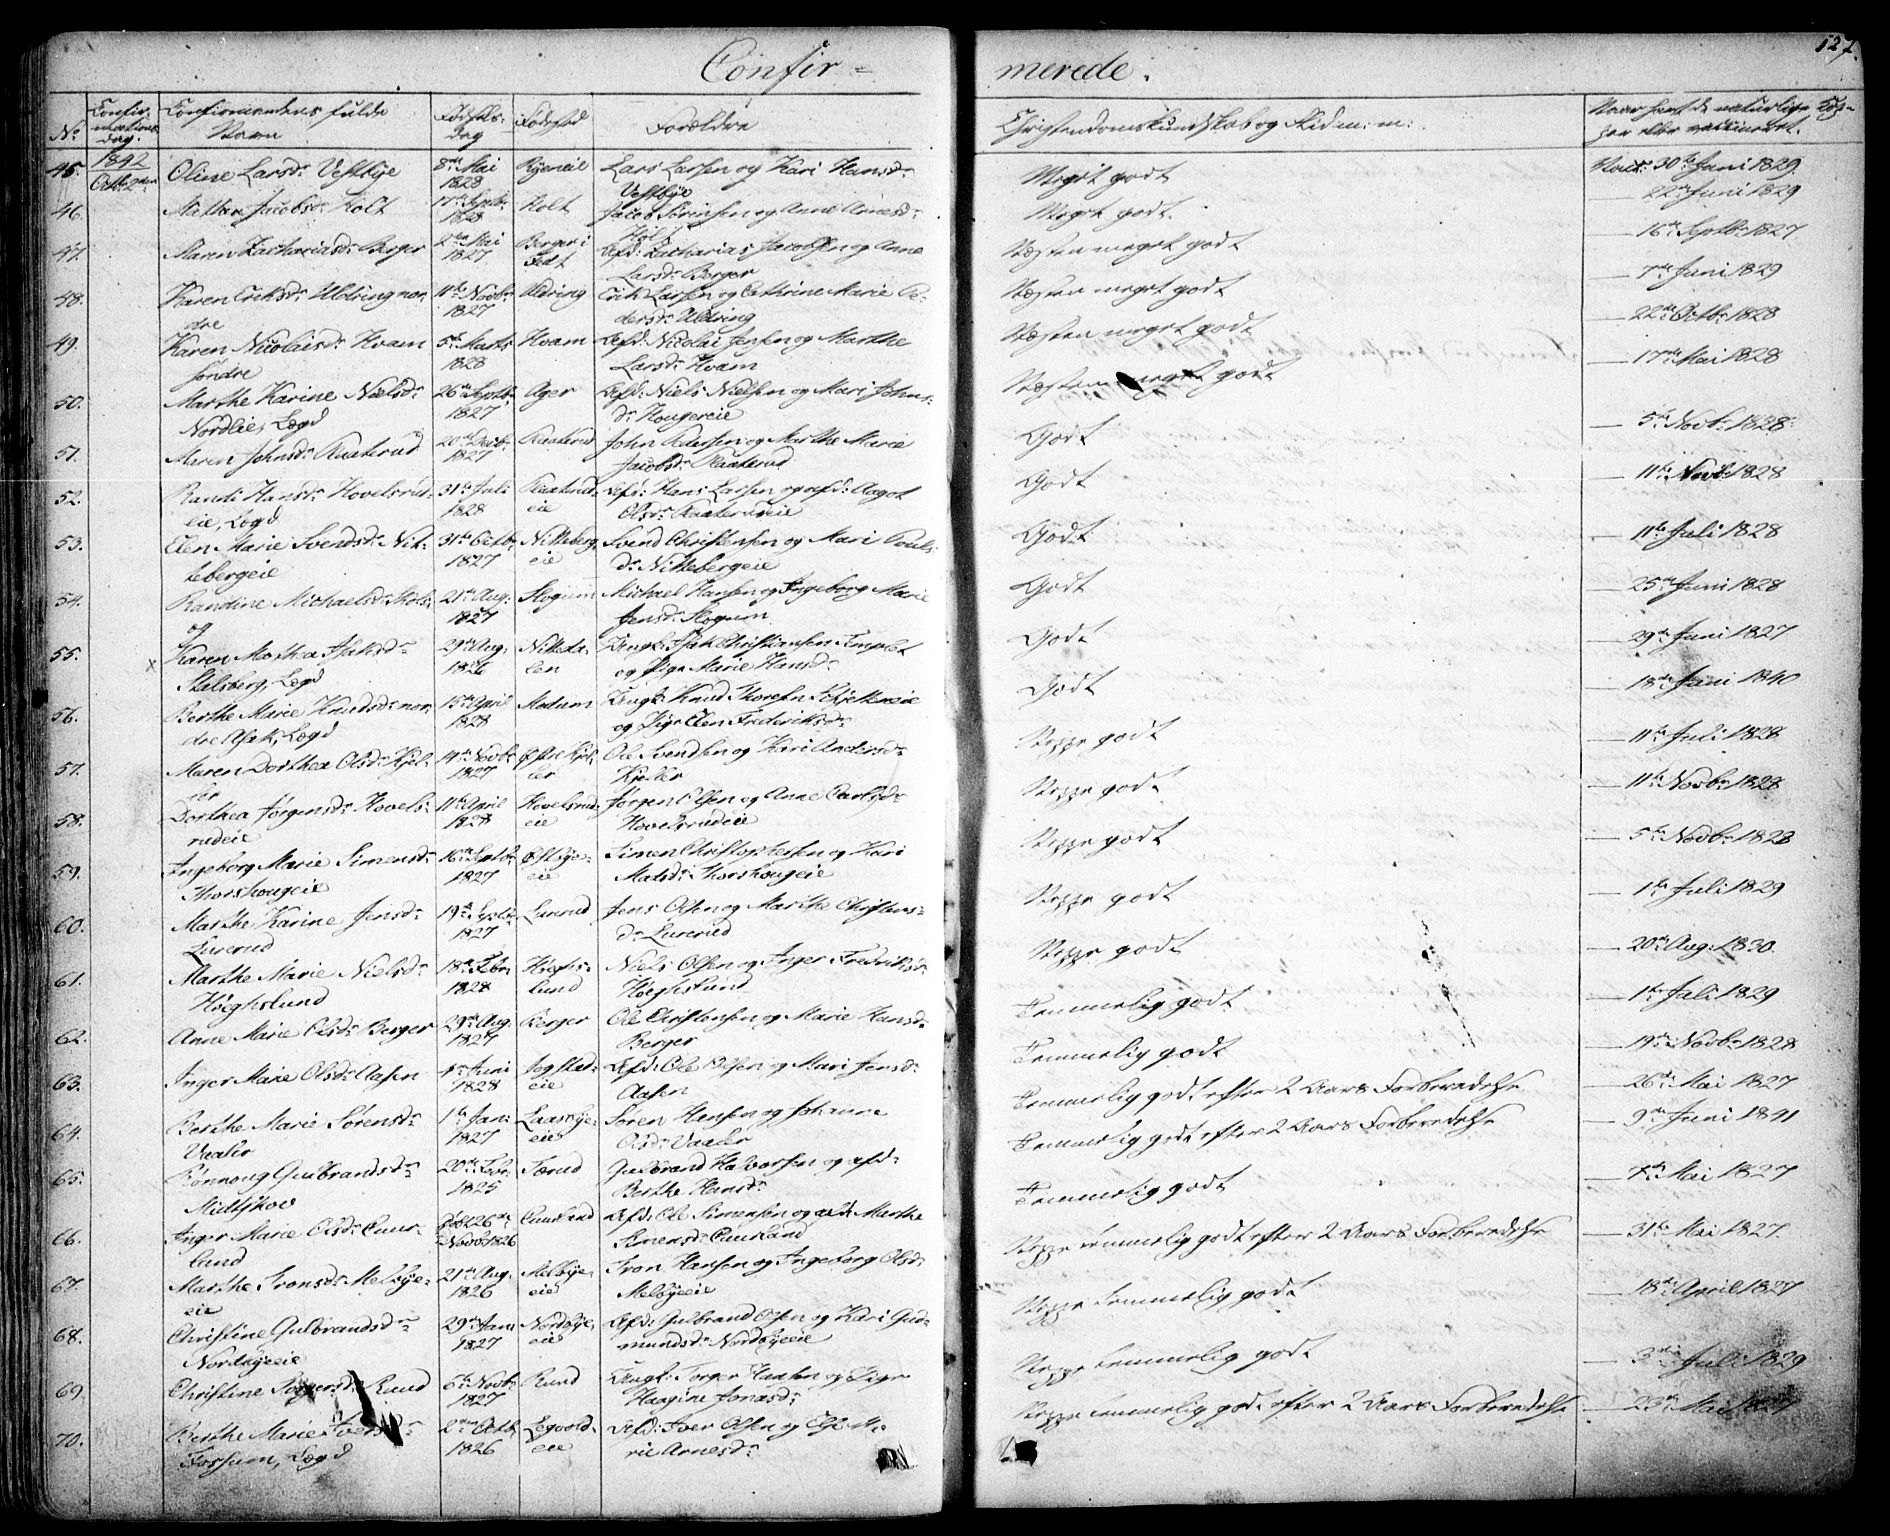 127.
Confir=
merede.
No
Confirmations dag.
Confirmandens fulde Navn
Fødsels-dag
Fødested
Forældre
Christendomskundskab og Flid m: m:
Naar havt de naturlige Kopper eller vaccineret.
45. 1842 Octb: 2den Oline Larsd: Vestbye 8de Mai 1828 Lars Larsen og Kari Hansd: Vestbye Meget godt Vacc: 30te Juni 1829
46. Jacobsd: Holt 17de Septb: 1828 Holt Jacob Sörensen og Anne Arnesd: Holt Meget godt. 22de Juni 1829
47. Maren Zachariasd: Berger 2den Mai 1827 Berger i Fedt Afd: Zacharias Jacobsen og Anne Larsd: Berger Næsten meget godt 16de Septb: 1827
48. Karen Eriksd: Uldring nordre 11te Novb: 1827 Uldring Erik Larsen og Cathrine Marie Pedersd: Uldring Næsten meget godt 7de Juni 1829
49. Karen Nicolaisd: Hvam søndre 5te Marts 1828 Hvam Afd: Nicolai Jensen og Marthe Larsd: Hvam Næsten meget godt 22de Octb: 1828
50. Marthe Karine Nielsd: Nordlie, Lægd 26de Septb: 1827 Ager Afd: Niels Nielsen og Mari Johnsd: Hougereie Næsten meget godt 17de Mai 1828
51. Maren Johnsd: Raaterud 20de Decb: 1827 Raaterud John Pedersen og Marthe Marie Jacobsd: Raaterud Godt 5te Novb: 1828
52. Randi Hansd: Hovelsrudeie, Lægd 31te Juli 1828 Raaterudeie Afd: Hans Larsen og afd: Aagot Olsd: Raaterudeie Godt 11te Novb: 1828
53. Elen Marie Svendsd: Nittebergeie 31te Octb: 1827 Nittebergeie Svend Christensen og Mari Poulsd: Nittebergeie Godt 11te Juli 1828
54. Randine Michaelsd: 21de Aug: 1827 Skogum Michael Hansen og Ingeborg Marie Jensd: Skogum Godt 25de Juni 1828
55. x Karen Mathea Isaksd: Stalsberg, Lægd 29de Aug: 1826 Nittedalen Isak Christiansen og Pige Marie Hansd: Godt 29de Juni 1827
56. Berthe Marie Knudsd: nordre Asak, Lægd 15de April 1828 Modum Knud Thoresen og Pige Elen Frederiksd: Godt 18de Juni 1840
57. Maren Dorthea Olsd: Kjeller 14de Novb: 1827 Østre Kjeller Ole Svendsen og Kari Andersd: Kjeller Neppe godt 11te Juli 1828
58. Dorthea Jørgensd: Hovelsrudeie 11te April 1828 Hovelsrudeie Jørgen Olsen og Anne Carlsd: Hovelsrudeie Neppe godt 11te Novb: 1828
59. Ingeborg Marie Simensd: Thorshougeie 16de Septb: 1827 Østbyeeie Simen Christophersen og Kari Matsd: Thorshougeie Neppe godt 5te Novb: 1828
60. Marthe Karine Jensd: Lurerud 19de Septb: 1827 Lurerud Jens Olsen og Marthe Christensd: Lurerud Neppe godt 1te Juli 1829
61. Marthe Marie Nielsd: Høeghslund 18de Febr: 1828 Høeghslund Niels Olsen og Inger Fredriksd: Høeghslund Neppe godt 20de Aug: 1830.
62. Anne Marie Olsd: Berger 29de Aug: 1827 Berger Ole Christensen og Marie Hansd: Berger Temmelig godt 1te Juli 1829
63. Inger Marie Olsd: Aasen 1ste Juni 1828 Jogstadeie Afd: Ole Olsen og Mari Jensd: Aasen Temmelig godt 19de Novb: 1828
64. Berthe Marie Sørensd: Vaaler 1te Jan: 1827 Laaskyeeie Søren Hansen og Johanne Olsd: Vaaler Temmelig godt efter 2 Aars Forberedelse 26de Mai 1827
65. Rønnoug Gulbrandsd: Midtskov 20de Febr: 1825 Tærud Gulbrand Halvorsen og afd: Berthe Hansd: Temmelig godt efter 2 Aars Forberedelse 9de Juni 1841
66. Inger Marie Olsd: Cuurland Døbt 26de Novb: 1826 Cuurland Afd: Ole Simensen og afd: Marthe Simensd: Cuurland Temmelig godt 7de Mai 1827
67. Marthe Tronsd: Melbyeeie 21de Aug: 1826 Melbyeeie Tron Hansen og Ingeborg Olsd: Melbyeeie Neppe temmelig godt efter 2 Aars Forberedelse 31te Mai 1827.
68. Christine Gulbrandsd: Nordbyeeie 29de Jan: 1827 Nordbyeeie Afd: Gulbrand Olsen og Kari Gudmundsd: Nordbyeeie Neppe temmelig godt 18de April 1827
69. Christine Torgersd: Ruud 6te Novb: 1827 Ruud Torger Hansen og Pige Haagine Jonasd: Neppe temmelig godt 3die Juli 1829
70. Berthe Marie Iversd: Fossum, Lægd 2den Octb: 1826 Afd: Iver Olsen og Else Marie Arnesd: Neppe temmelig godt efter 2 Aars Forberedelse 23de Mai 1827